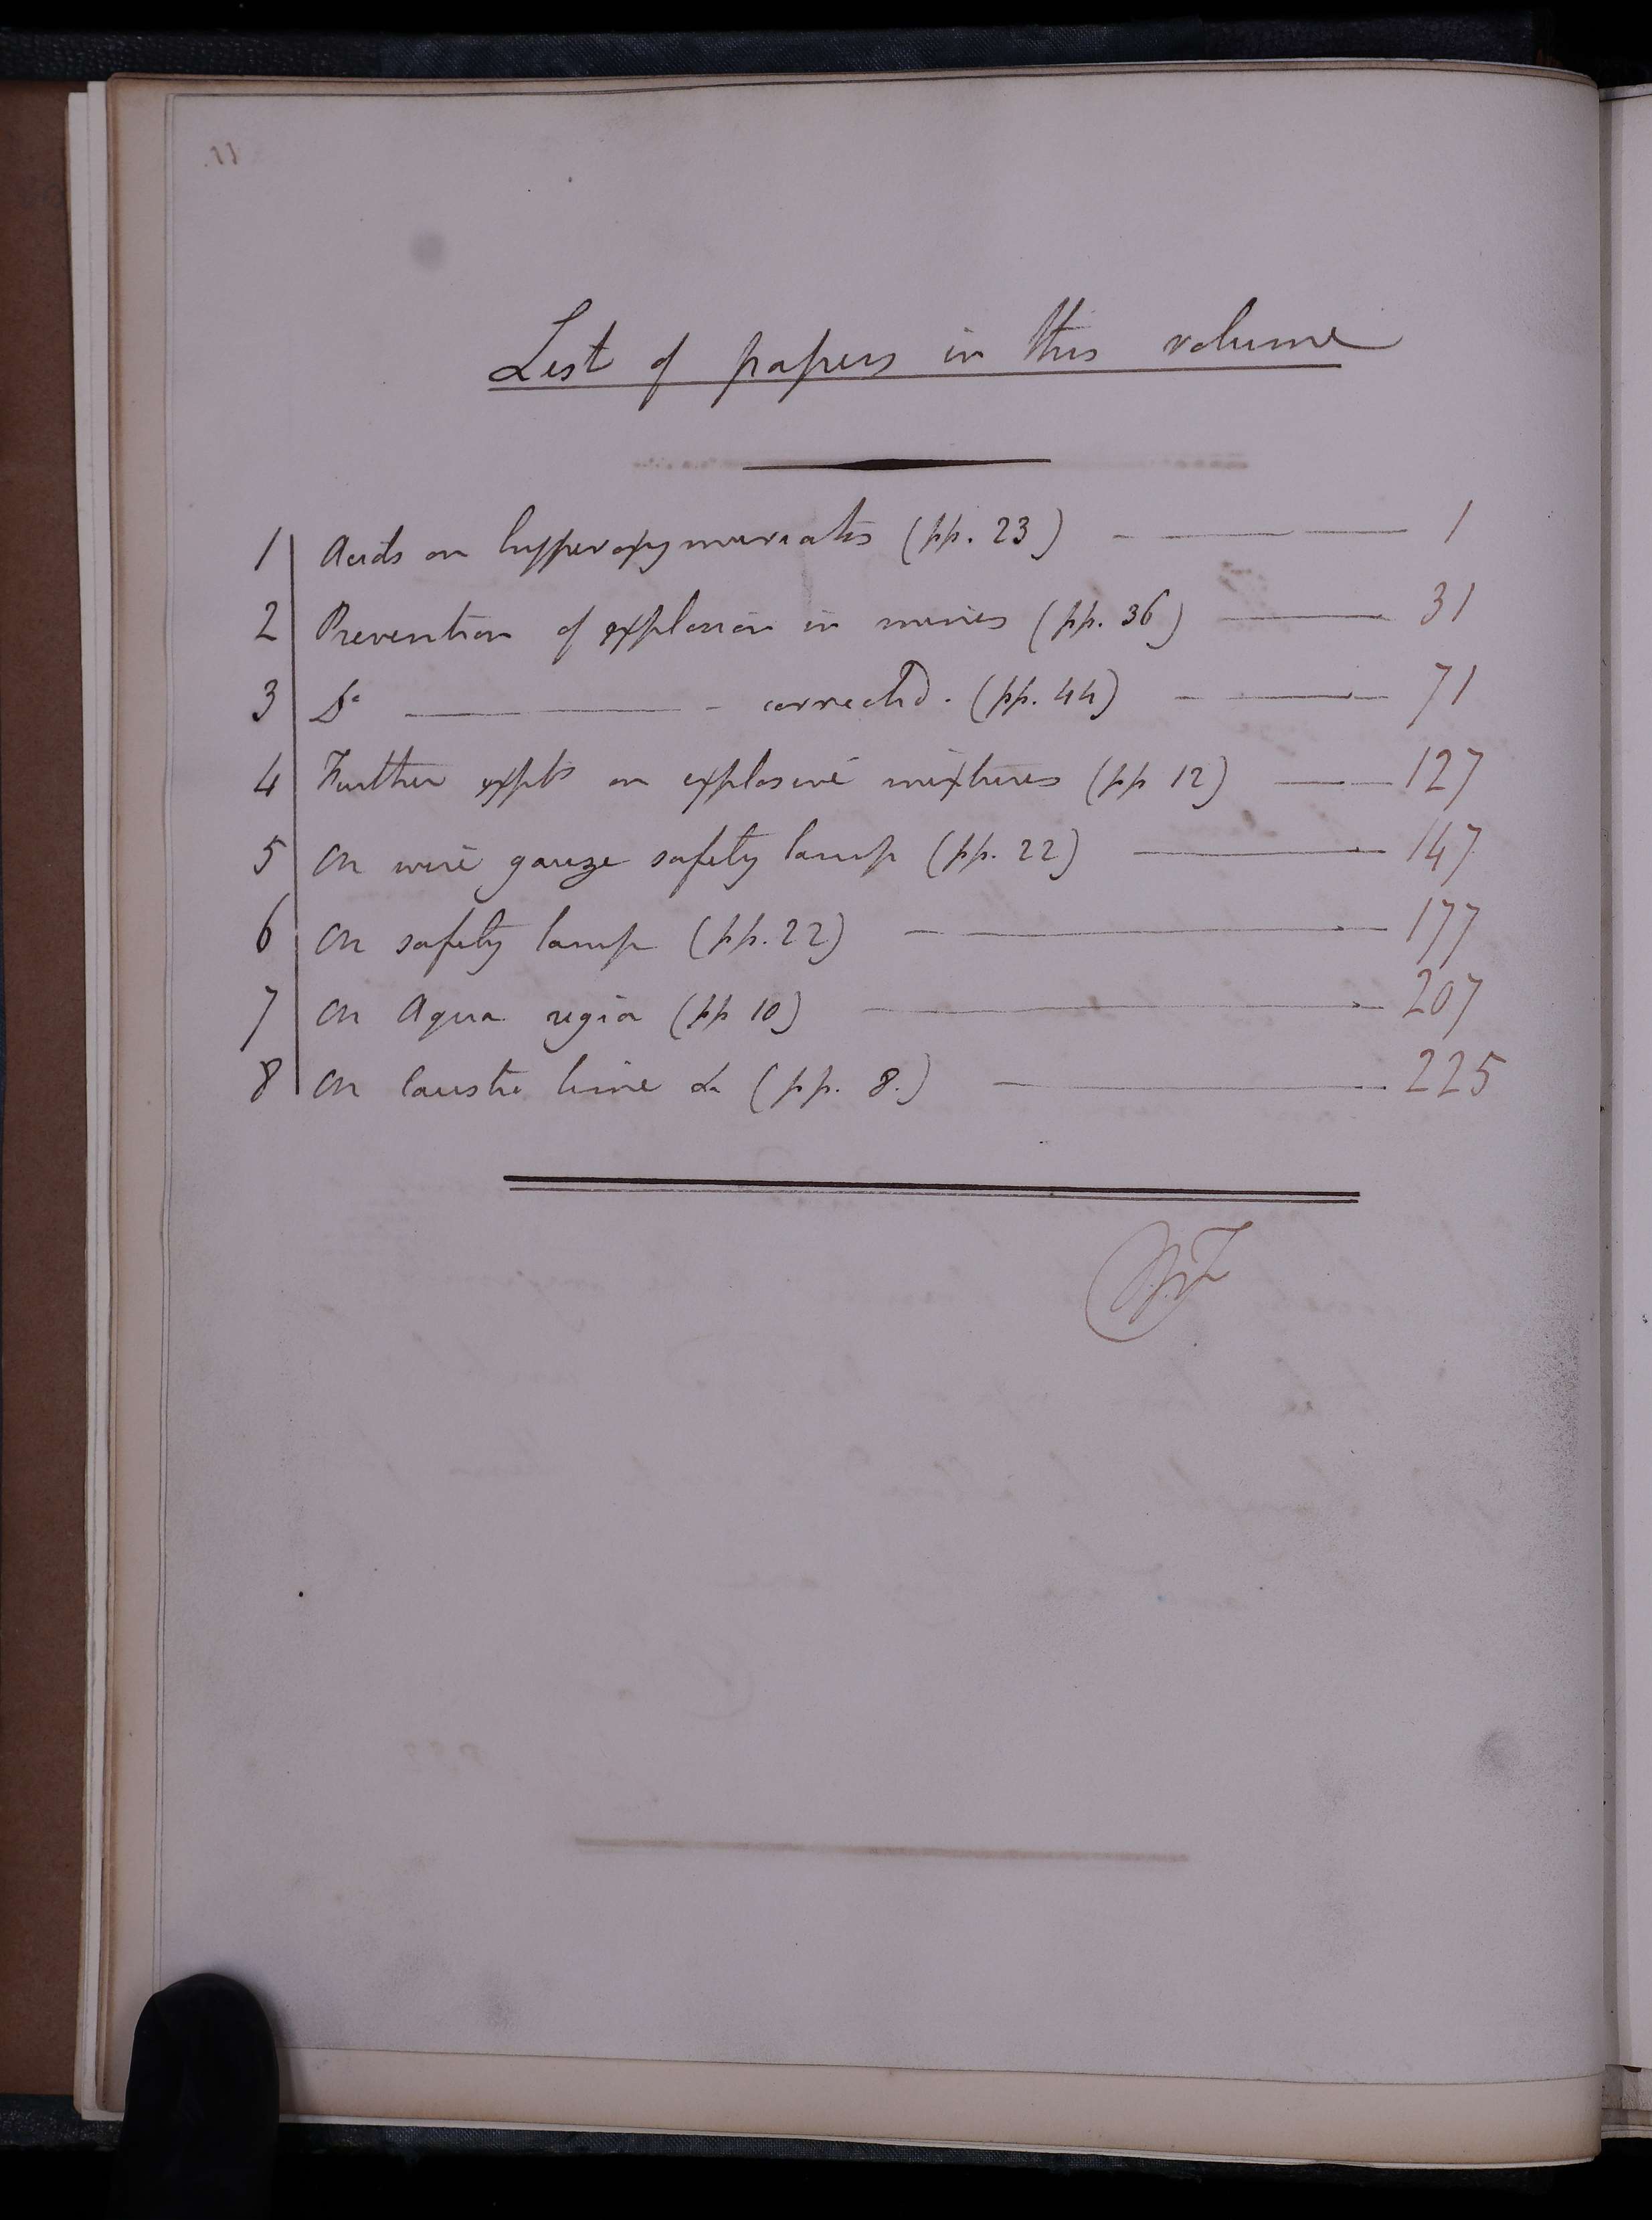 List of papers in this volume
1 Acids on hyperoxymuriates (pp. 23) — 1
2 Prevention of explosion in mines (pp. 36) — 31
3 Do — corrected. (pp. 44) — 71
4 Further expts on explosive mixtures (pp 12) — 127
5 On wire gauze safety lamp (pp. 22) — 147
6 On safety lamp (pp. 22) — 177
7 On Aqua regia (pp 10) — 207
8 On Caustic lime &c (pp. 8.) — 225